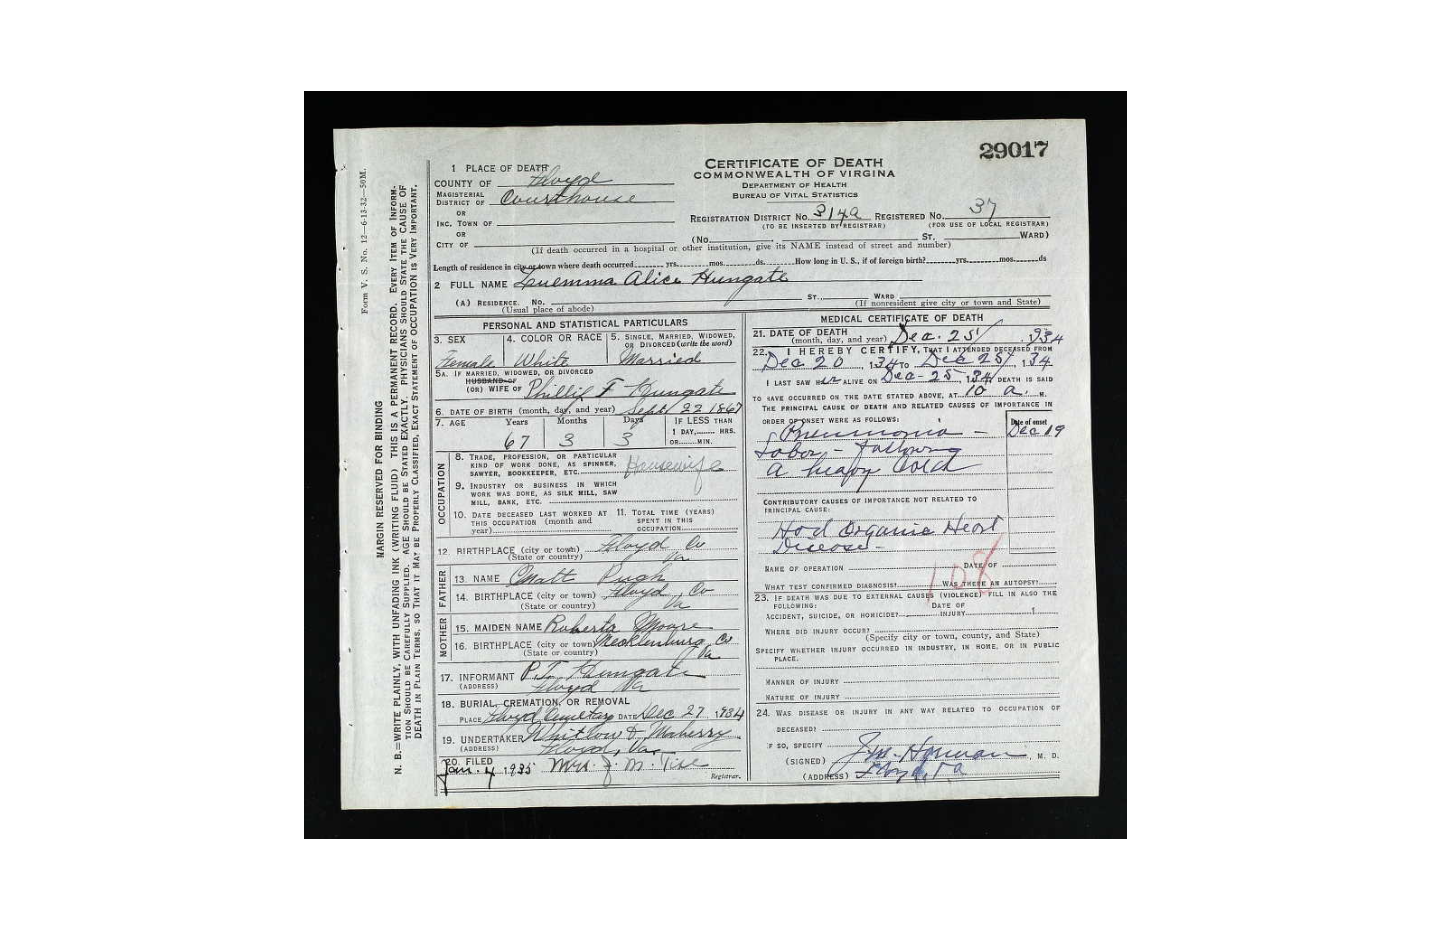 29017
CERTIFICATE OF DEATH
COMMONWEALTH OF VIRGINIA
DEPARTMENT OF HEALTH
BUREAU OF VITAL STATISTICS
1 PLACE OF DEATH
COUNTY OF Floyd
MAGISTERIAL DISTRICT OF Courthouse
OR
INC. TOWN OF
OR
CITY OF
REGISTRATION DISTRICT NO. 314a REGISTERED NO. 37
(TO BE INSERTED BY REGISTRAR) (FOR USE OF LOCAL REGISTRAR)
(No. ST. WARD)
(If death occurred in a hospital or other institution, give its NAME instead of street and number)
Length of residence in city or town where death occurred yrs. mos. ds. How long in U. S., if of foreign birth? yrs. mos. ds
2 FULL NAME Luemma Alice Hungate
(A) RESIDENCE. No. ST., WARD
(Usual place of abode) (If nonresident give city or town and State)
PERSONAL AND STATISTICAL PARTICULARS
3. SEX 4. COLOR OR RACE 5. SINGLE, MARRIED, WIDOWED, OR DIVORCED (write the word)
Female White Married
5A. IF MARRIED, WIDOWED, OR DIVORCED
HUSBAND OF
(OR) WIFE OF Phillip T Hungate
6. DATE OF BIRTH (month, day, and year) Sept 22 1867
7. AGE Years Months Days IF LESS THAN
1 DAY, HRS.
OR MIN.
67 3 3
OCCUPATION
8. TRADE, PROFESSION, OR PARTICULAR
KIND OF WORK DONE, AS SPINNER,
SAWYER, BOOKKEEPER, ETC. Housewife
9. INDUSTRY OR BUSINESS IN WHICH
WORK WAS DONE, AS SILK MILL, SAW
MILL, BANK, ETC.
10. DATE DECEASED LAST WORKED AT
THIS OCCUPATION (month and
year)
11. TOTAL TIME (YEARS)
SPENT IN THIS
OCCUPATION
12 BIRTHPLACE (city or town) Floyd Co
(State or country) Va
FATHER
13. NAME Matt Pugh
14. BIRTHPLACE (city or town) Floyd Co
(State or country) Va
MOTHER
15. MAIDEN NAME Roberta Moore
16. BIRTHPLACE (city or town) Mecklenburg Co
(State or country) Va
17. INFORMANT P.T. Hungate
(ADDRESS) Floyd Va
18. BURIAL, CREMATION, OR REMOVAL
PLACE Floyd Cemetary DATE Dec 27, 1934
19. UNDERTAKER Whitlow & Maberry
(ADDRESS) Floyd, Va.
20. FILED
Jan. 4 1935 Mrs. J. M.
Registrar.
MEDICAL CERTIFICATE OF DEATH
21. DATE OF DEATH
(month, day, and year) Dec. 25, 1934
22. I HEREBY CERTIFY, THAT I ATTENDED DECEASED FROM
Dec 20, 1934 TO Dec 25, 1934
I LAST SAW HER ALIVE ON Dec-25, 1934 DEATH IS SAID
TO HAVE OCCURRED ON THE DATE STATED ABOVE, AT 10 a. M.
THE PRINCIPAL CAUSE OF DEATH AND RELATED CAUSES OF IMPORTANCE IN
ORDER OF ONSET WERE AS FOLLOWS: Date of onset
Pneumonia - Dec 19
Lobar - following
a heavy cold
CONTRIBUTORY CAUSES OF IMPORTANCE NOT RELATED TO
PRINCIPAL CAUSE:
Had Organic Heart
Disease-
108
NAME OF OPERATION DATE OF
WHAT TEST CONFIRMED DIAGNOSIS? WAS THERE AN AUTOPSY?
23. IF DEATH WAS DUE TO EXTERNAL CAUSES (VIOLENCE) FILL IN ALSO THE
FOLLOWING: DATE OF
ACCIDENT, SUICIDE, OR HOMICIDE? INJURY 1
WHERE DID INJURY OCCUR?
(Specify city or town, county, and State)
SPECIFY WHETHER INJURY OCCURRED IN INDUSTRY, IN HOME, OR IN PUBLIC
PLACE.
MANNER OF INJURY
NATURE OF INJURY
24. WAS DISEASE OR INJURY IN ANY WAY RELATED TO OCCUPATION OF
DECEASED?
IF SO, SPECIFY
(SIGNED) J.M. , M. D.
(ADDRESS) Floyd, Va
Form V. S. No. 12—6-13-32—50M.
MARGIN RESERVED FOR BINDING
N. B.—WRITE PLAINLY, WITH UNFADING INK (WRITING FLUID) THIS IS A PERMANENT RECORD. EVERY ITEM OF INFORM-
TION SHOULD BE CAREFULLY SUPPLIED. AGE SHOULD BE STATED EXACTLY. PHYSICIANS SHOULD STATE THE CAUSE OF
DEATH IN PLAIN TERMS, SO THAT IT MAY BE PROPERLY CLASSIFIED. EXACT STATEMENT OF OCCUPATION IS VERY IMPORTANT.